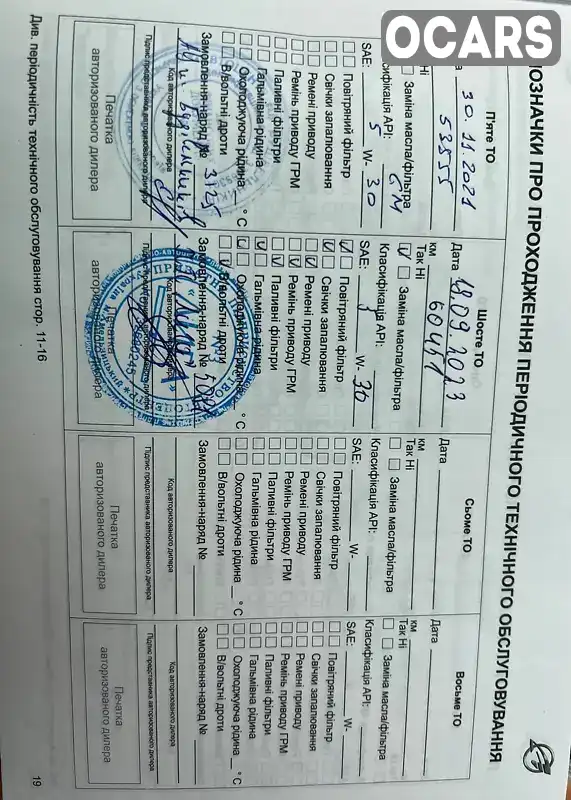 OCARS
ПОЗНАЧКИ ПРО ПРОХОДЖЕННЯ ПЕРІОДИЧНОГО ТЕХНІЧНОГО ОБСЛУГОВУВАННЯ
П'яте ТО
30.11.2021
53855
Так Ні
Заміна масла/фільтра
Класифікація API: GM
SAE: 5 W- 30
Повітряний фільтр
Свічки запалювання
Ремені приводу
Ремінь приводу ГРМ
Паливні фільтри
Гальмівна рідина
Охолоджуюча рідина °C
В/вольтні дроти
Замовлення-наряд №
Код авторизованого дилера
Підпис представника авторизованого дилера
Печатка
авторизованого дилера
Шосте ТО
Дата 19.09.2023
км 60451
Так Ні
Заміна масла/фільтра
Класифікація API:
SAE: W- 30
Повітряний фільтр
Свічки запалювання
Ремені приводу
Ремінь приводу ГРМ
Паливні фільтри
Гальмівна рідина
Охолоджуюча рідина °C
В/вольтні дроти
Замовлення-наряд №
Печатка
авторизованого дилера
Сьоме ТО
Дата
км
Так Ні
Заміна масла/фільтра
Класифікація API:
SAE: W-
Повітряний фільтр
Свічки запалювання
Ремені приводу
Ремінь приводу ГРМ
Паливні фільтри
Гальмівна рідина
Охолоджуюча рідина °C
В/вольтні дроти
Замовлення-наряд №
Код авторизованого дилера
Підпис представника авторизованого дилера
Печатка
авторизованого дилера
Восьме ТО
Дата
км
Так Ні
Заміна масла/фільтра
Класифікація API:
SAE: W-
Повітряний фільтр
Свічки запалювання
Ремені приводу
Ремінь приводу ГРМ
Паливні фільтри
Гальмівна рідина
Охолоджуюча рідина °C
В/вольтні дроти
Замовлення-наряд №
Код авторизованого дилера
Підпис представника авторизованого дилера
Печатка
авторизованого дилера
Див. періодичність технічного обслуговування стор. 11-16
19